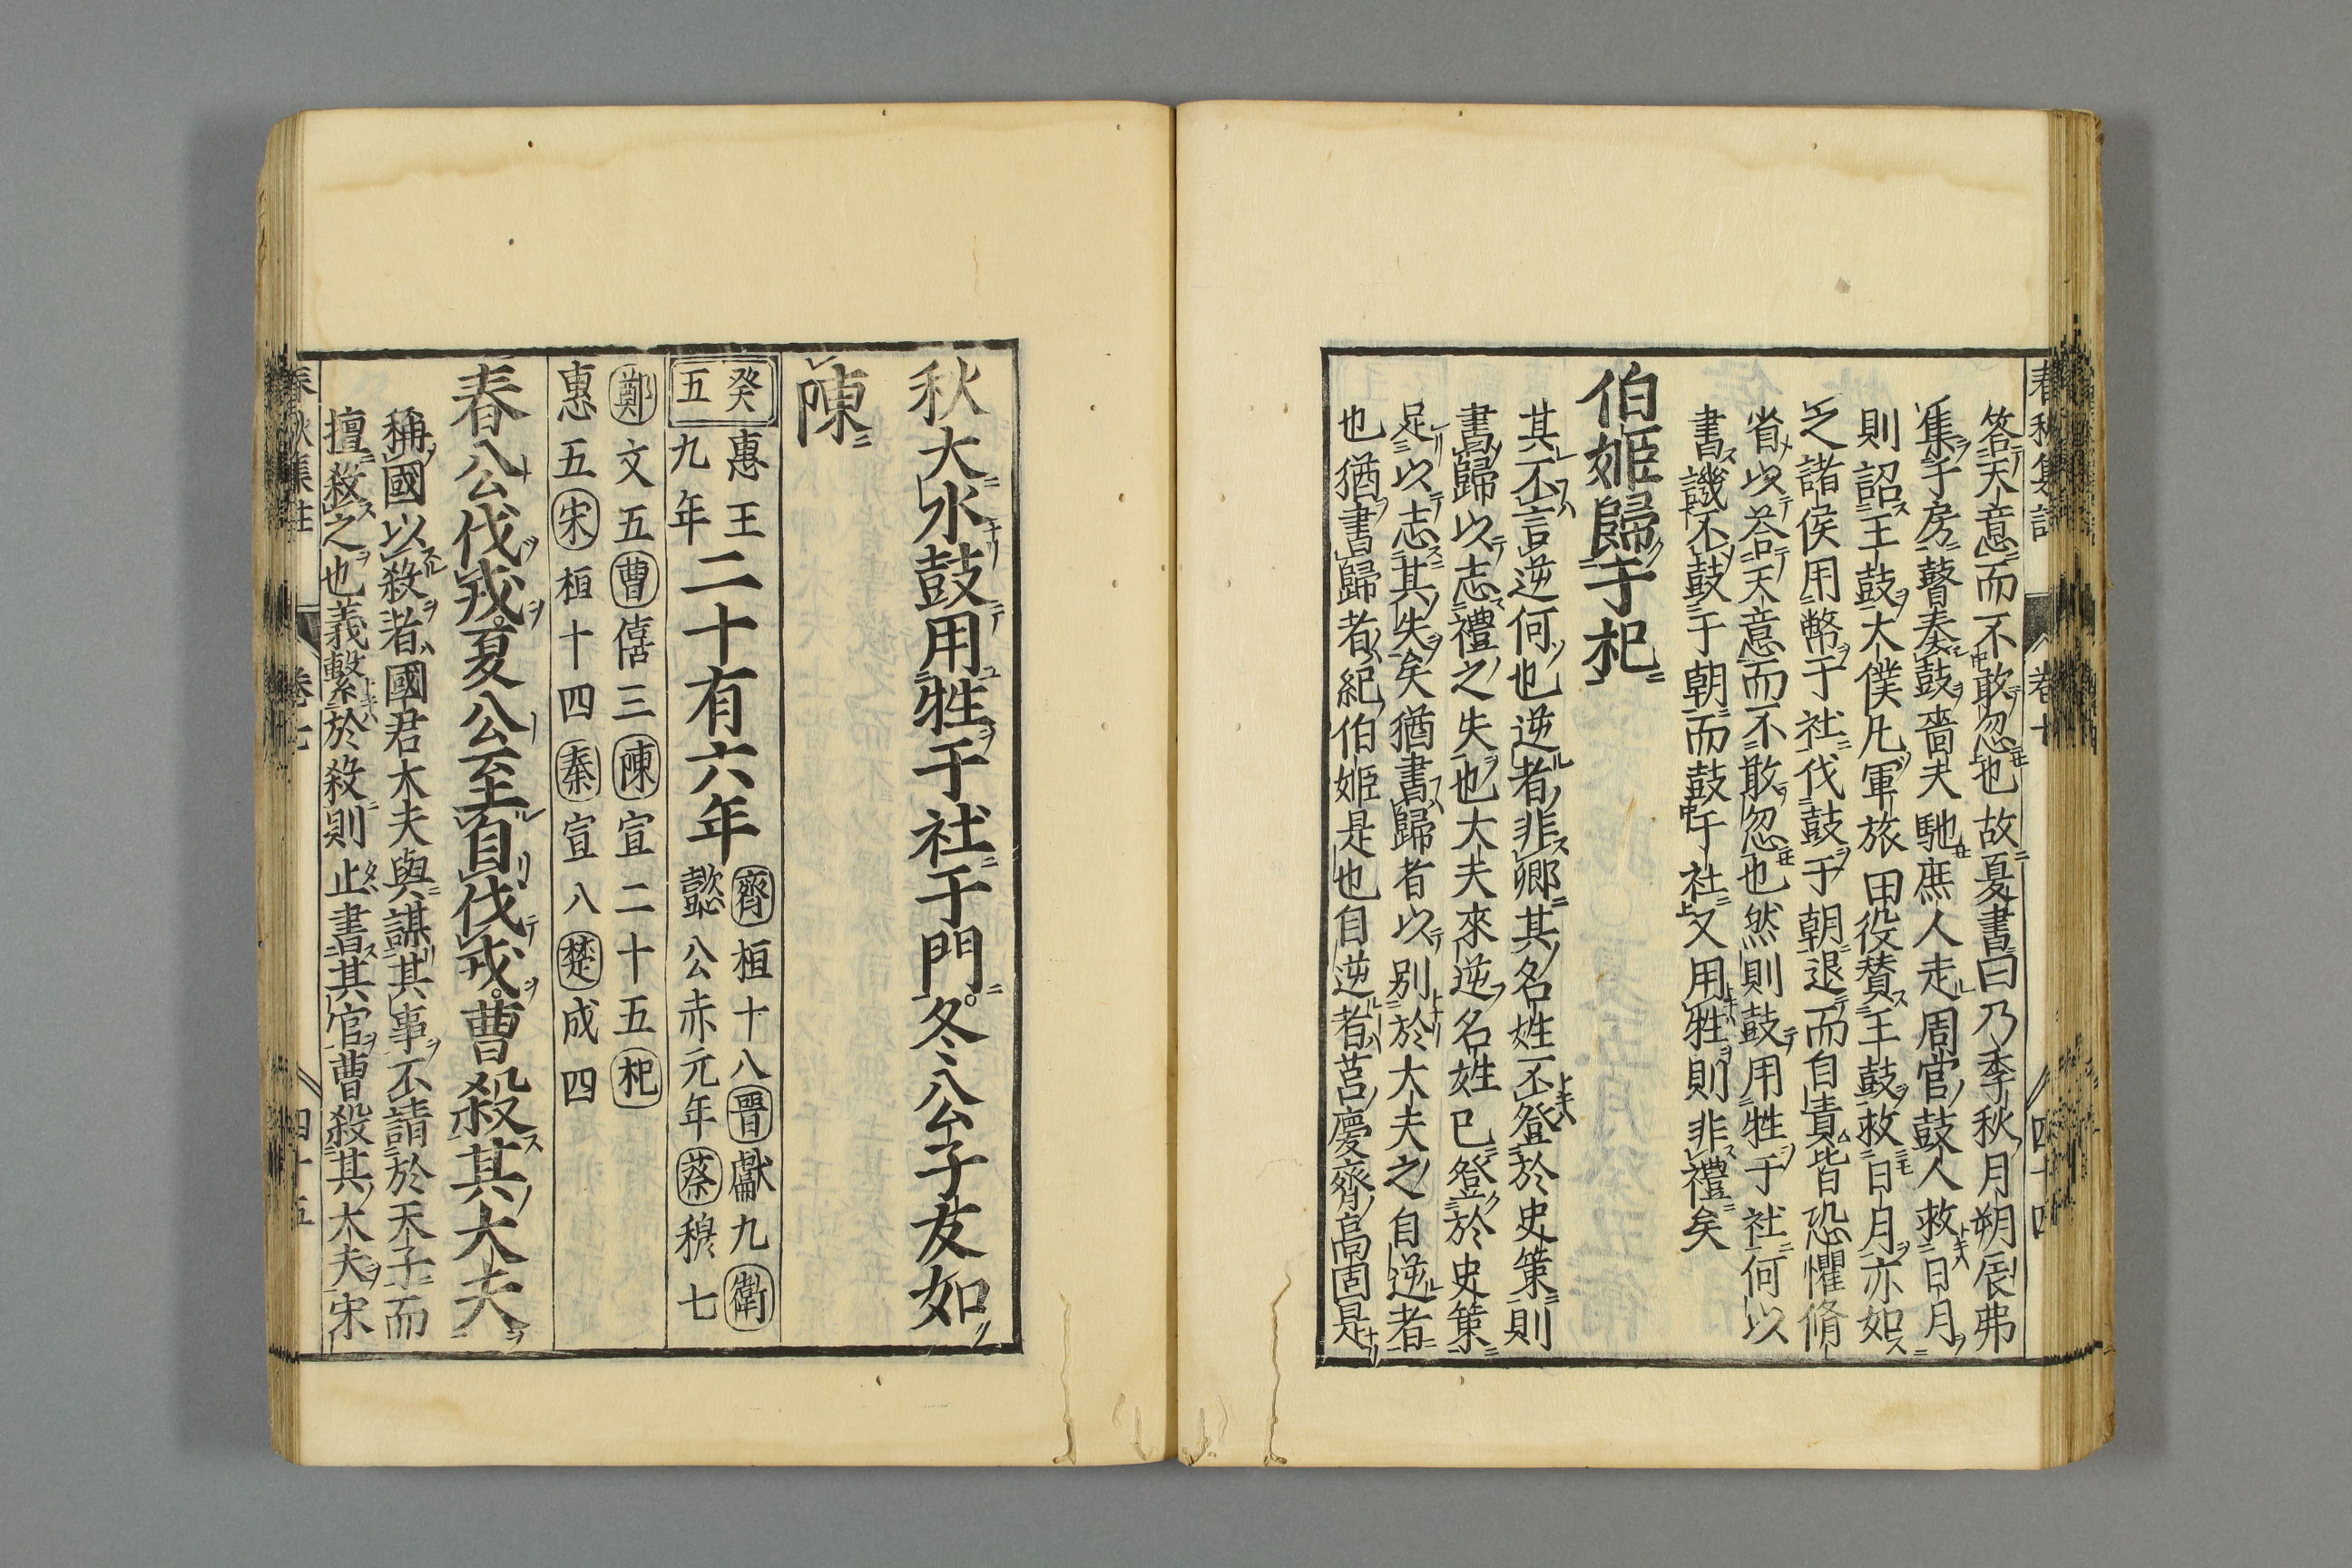 春秋集註 卷七 四十四
答天意而不敢忽也故夏書曰乃季秋月朔辰弗
集于房瞽奏鼓嗇夫馳庶人走周官鼓人救日月
則詔王鼓大僕凡軍旅田役賛王鼓救日月亦如
之諸侯用幣于社伐鼓于朝退而自責皆恐懼脩
省以答天意而不敢忽也然則鼓用牲于社何以
書譏不鼓于朝而鼓于社又用牲則非禮矣
伯姬歸于杞
其不言逆何也逆者非卿其名姓不登於史策則
書歸以志禮之失也大夫來逆名姓已登於史策
足以志其失矣猶書歸者以别於大夫之自逆者
也猶書歸者紀伯姬是也自逆者莒慶齊高固是
秋大水鼓用牲于社于門冬公子友如
陳
癸五 惠王九年 二十有六年 齊桓十八晋獻九衛懿公赤元年蔡穆七
鄭文五曹僖三陳宣二十五杞
惠五宋桓十四秦宣八楚成四
春公伐戎夏公至自伐戎曹殺其大夫
稱國以殺者國君大夫與謀其事不請於天子而
擅殺之也義繫於殺則止書其官曹殺其大夫宋
春秋集註 卷七 四十五